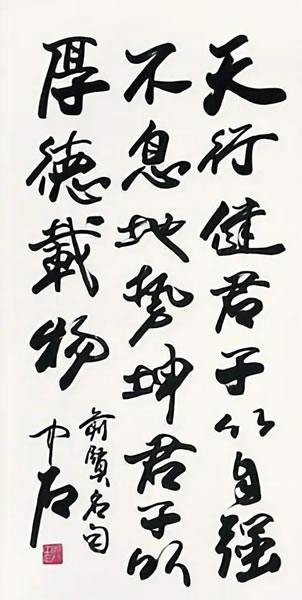 天行健君子以自强
不息地势坤君子以
厚德載物
前賢名句
中石